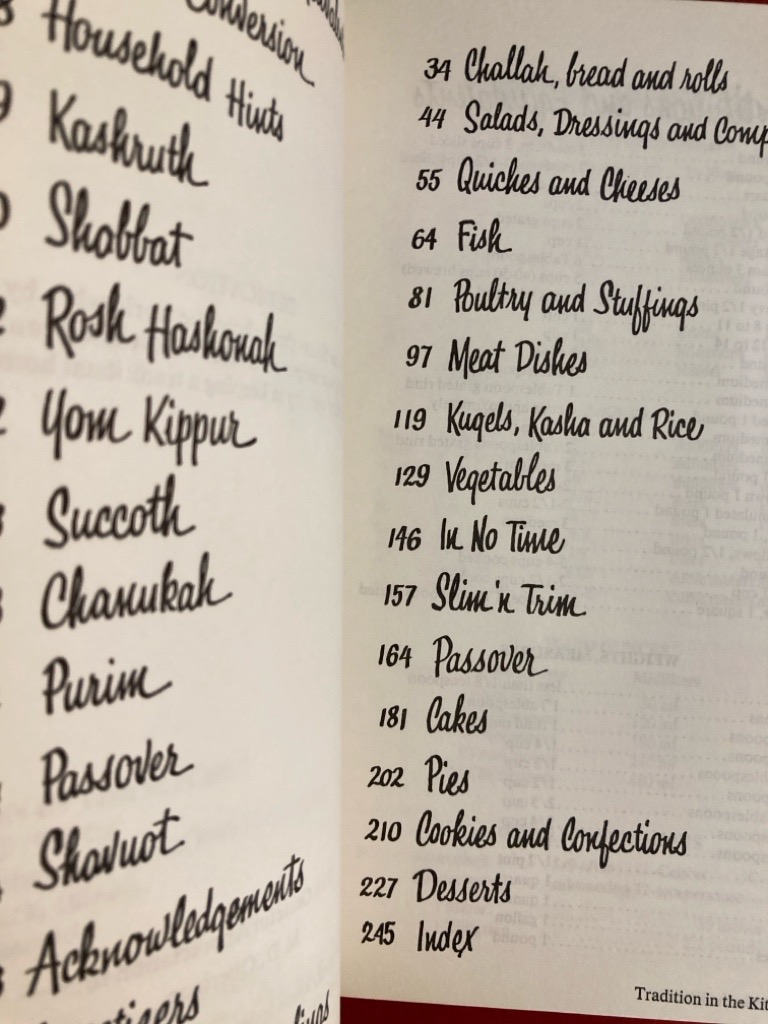 Conversion
Household Hints
Kashruth
Shabbat
Rosh Hashonah
Yom Kippur
Succoth
Chanukah
Purim
Passover
Shavuot
Acknowledgements
34 Challah, bread and rolls
44 Salads, Dressings and Comp
55 Quiches and Cheeses
64 Fish
81 Poultry and Stuffings
97 Meat Dishes
119 Kugels, Kasha and Rice
129 Vegetables
146 In No Time
157 Slim'n Trim
164 Passover
181 Cakes
202 Pies
210 Cookies and Confections
227 Desserts
245 Index
Tradition in the Kit